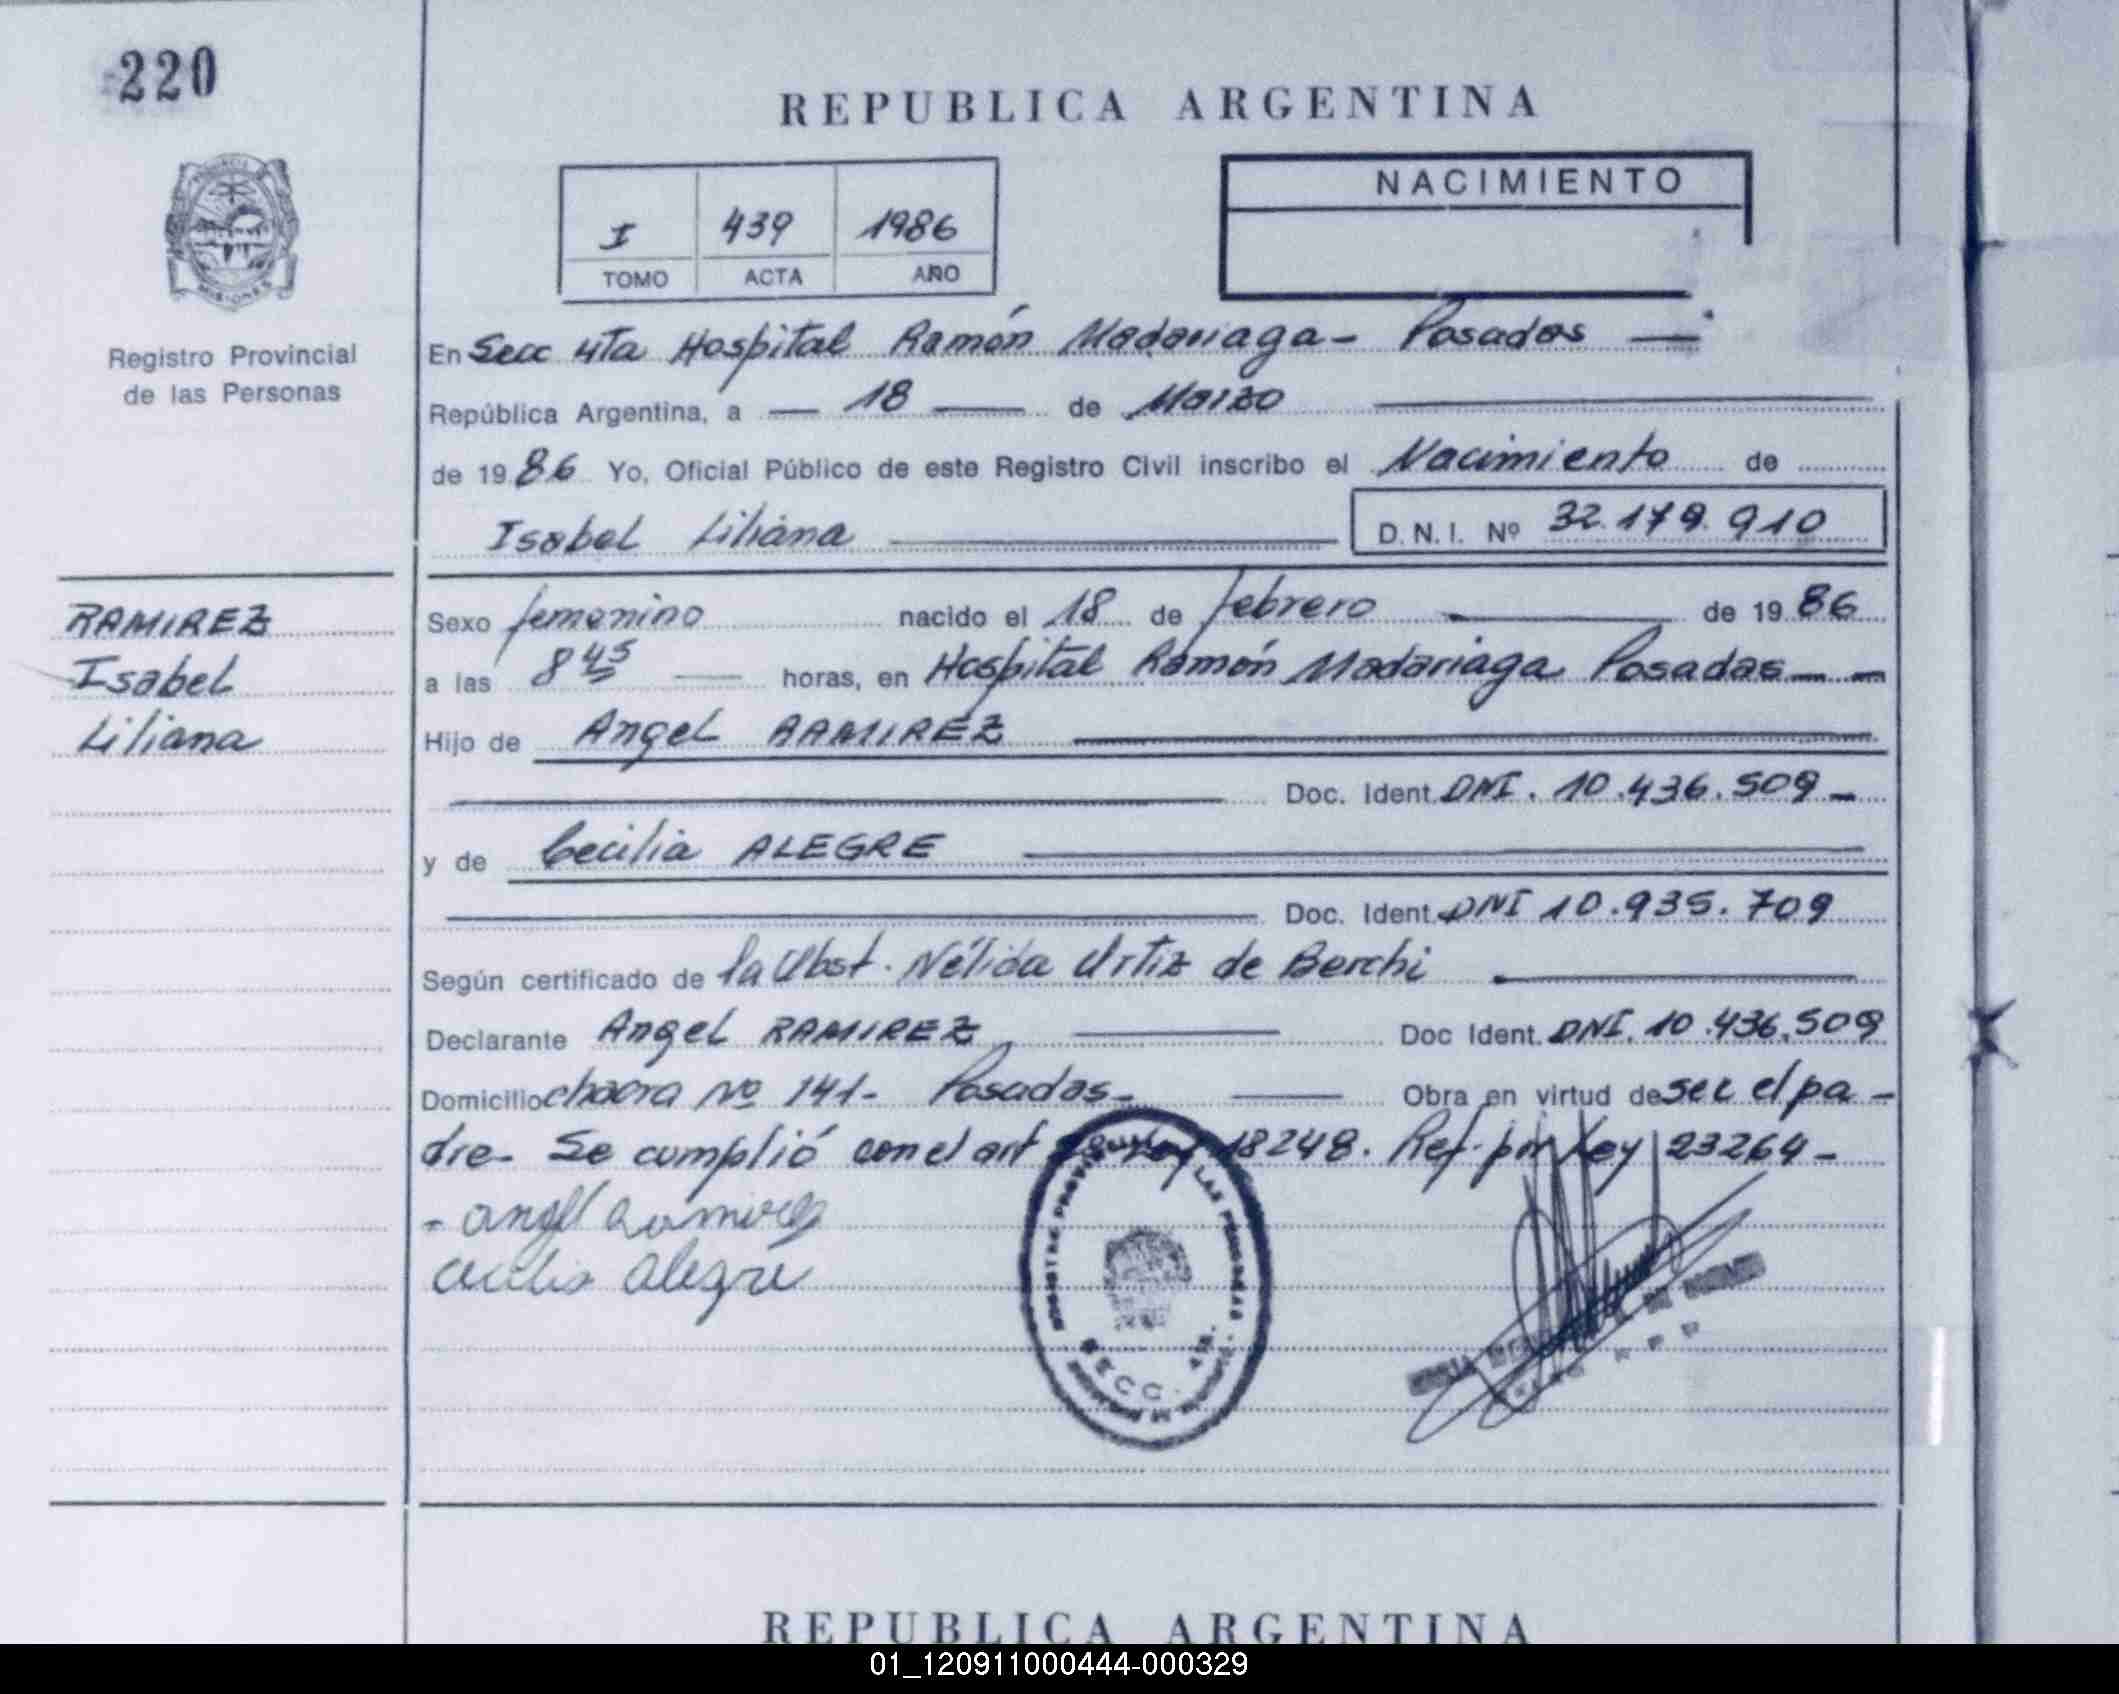 220
REPUBLICA ARGENTINA
NACIMIENTO
I 439 1986
TOMO ACTA AÑO
Registro Provincial
de las Personas
En Secc 4ta Hospital Ramón Madariaga - Posadas —
República Argentina, a — 18 — de Marzo
de 1986 Yo, Oficial Público de este Registro Civil inscribo el Nacimiento de
Isabel Liliana
D.N.I. Nº 32.179.910
RAMIREZ
Isabel
Liliana
Sexo femenino nacido el 18 de febrero de 1986
a las 8 45 — horas, en Hospital Ramón Madariaga Posadas - -
Hijo de Angel RAMIREZ
Doc. Ident. DNI. 10.436.509 -
y de Cecilia ALEGRE
Doc. Ident. DNI 10.935.709
Según certificado de la Obst. Nélida Urtiz de Berchi
Declarante Angel RAMIREZ Doc Ident. DNI. 10.436.509
Domicilio chacra Nº 141 - Posadas - Obra en virtud de ser el pa -
dre - Se cumplió con el art Ley 18248. Ref. por Ley 23264 -
- angel Ramirez
cecilia Alegre
SECC. 4ta.
REPUBLICA ARGENTINA
01_120911000444-000329